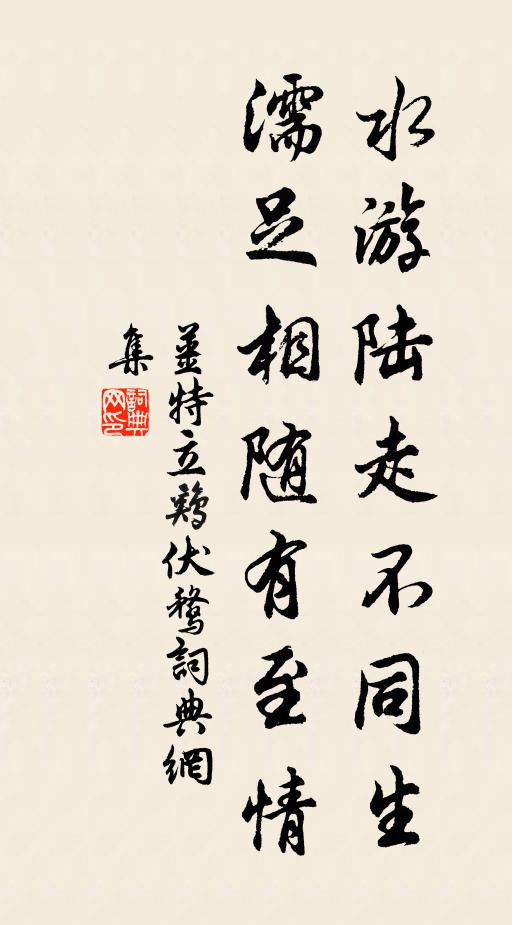 水游陆走不同生
濡足相随有至情
姜特立鷄伏鶩詞典網
集
詞典
网印